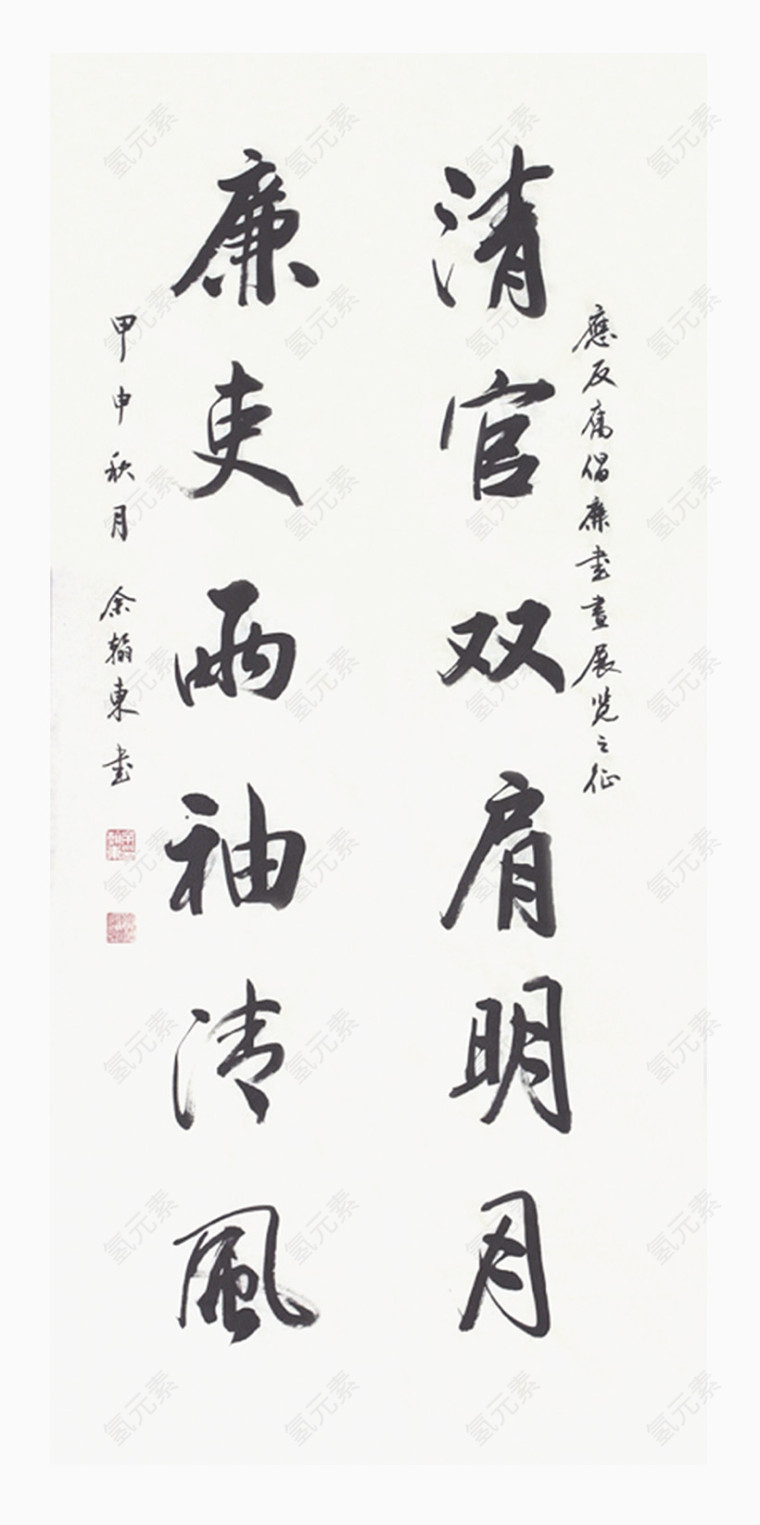 應反腐倡廉书畫展览之征
清官双肩明月
廉吏兩袖清風
甲申秋月 余翰東书
氢元素